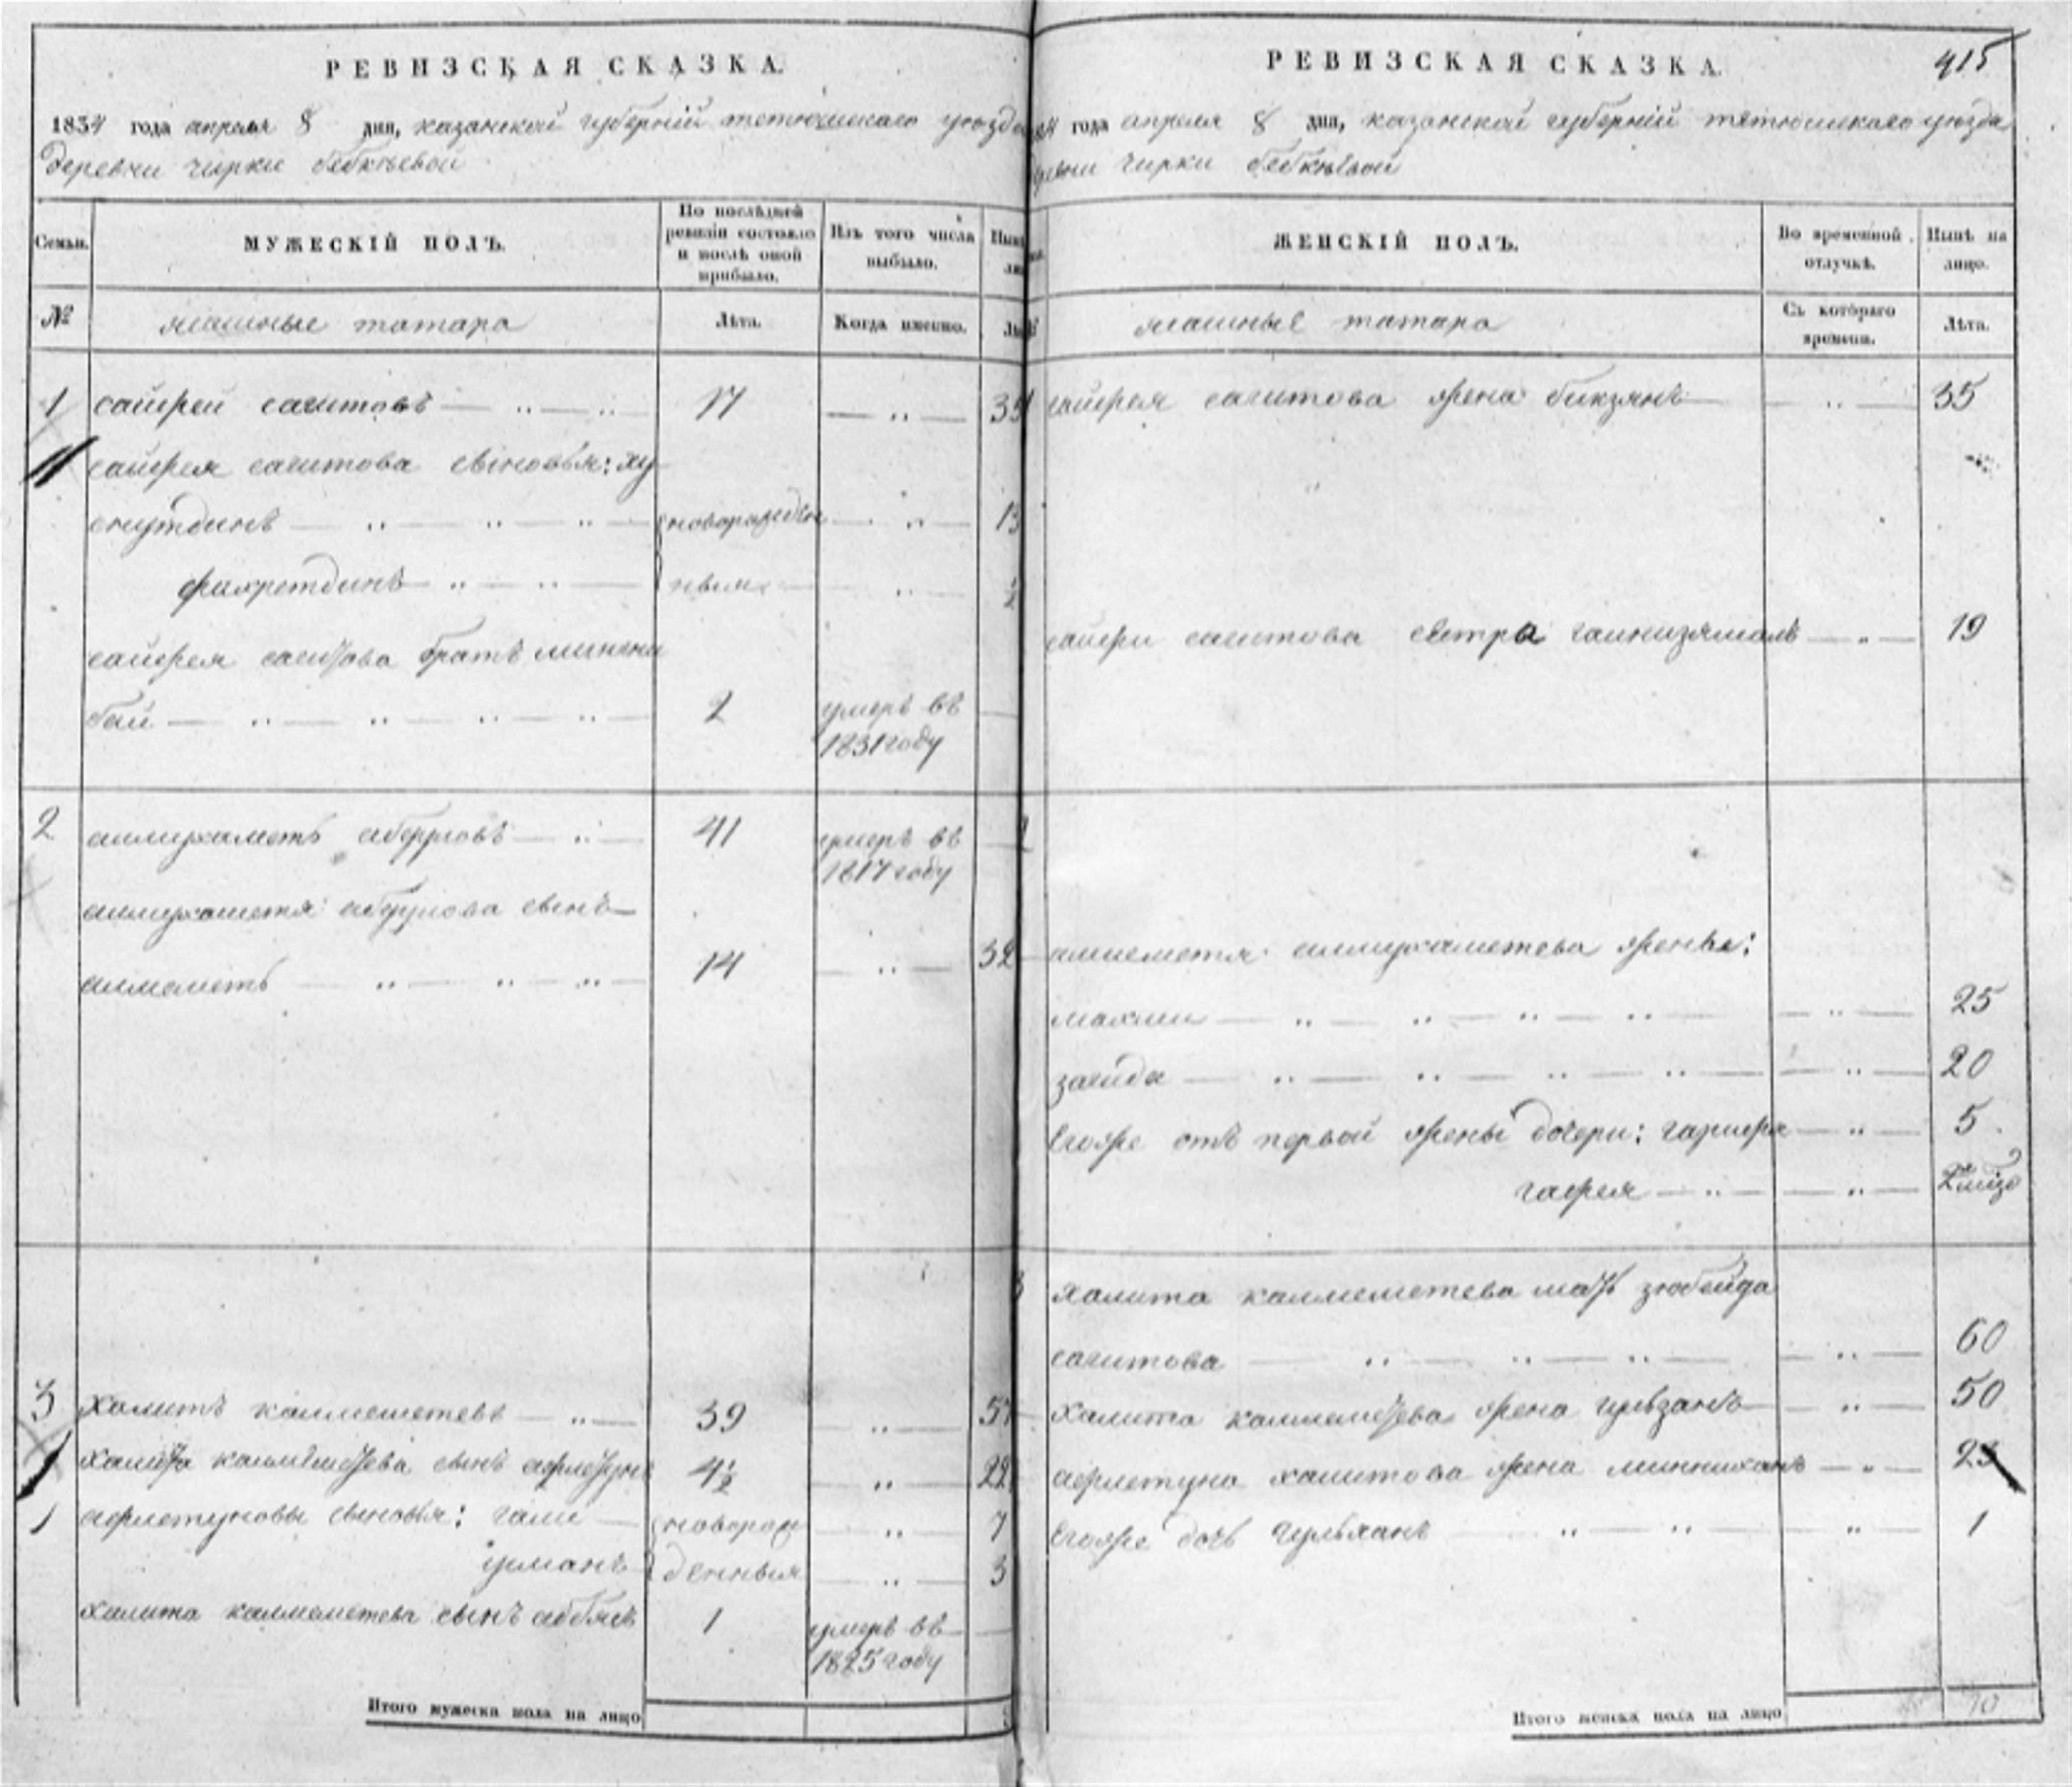 РЕВИЗСКАЯ СКАЗКА.
1834 года апреля 8 дня, казанской губерніи тетюшскаго уезда
деревни чирки бебкѣевой
Семьи.
МУЖЕСКІЙ ПОЛЪ.
По послѣдней ревизіи состояло и послѣ оной прибыло.
Изъ того числа выбыло.
№
ясашные татара
Лѣта.
Когда именно.
1 сайфей сагитовъ 17
сайфея сагитова сыновья: ху
снутдинъ новорожден 13
фахретдинъ ныя ½
сайфея сагитова братъ минни
бай 2 умеръ въ
1831 году
2 алмухаметъ абдуловъ 41 умеръ въ
1817 году
алмухаметя абдулова сынъ
алмаметь 14 32
3 халитъ калмаметевъ 39 57
халита калмаметева сынъ афлетунъ 4½ 22
афлетуновы сыновья: гали новорож 7
усманъ денныя 3
халита калмаметева сынъ аббясъ 1 умеръ въ
1825 году
Итого мужеска пола на лицо
РЕВИЗСКАЯ СКАЗКА.
415
года апреля 8 дня, казанской губерніи тетюшскаго уезда
чирки бебкѣевой
ЖЕНСКІЙ ПОЛЪ.
Во временной отлучкѣ.
Нынѣ на лицо.
ясашные татара
Съ котораго времени.
Лѣта.
сайфея сагитова жена бикзянъ 35
сайфея сагитова сестра 19
алмаметя алмухаметева жены:
махши 25
загида 20
Егоже отъ первой жены дочери: 5
гафея
3 халита калмаметева мать зюбейда
сагитова 60
халита калмаметева жена гульзанъ 50
афлетуна халитова жена минниханъ 23
Егоже дочь гульханъ 1
Итого женска пола на лицо 10